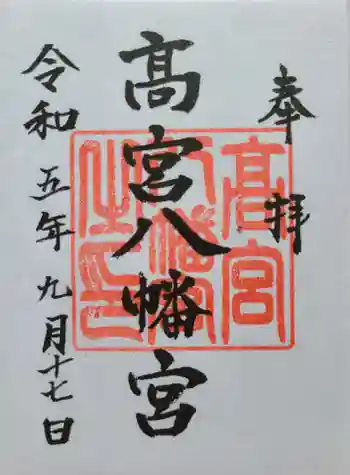 奉拝
高宮八幡宮
令和五年九月十七日
高宮
八幡宮
之印